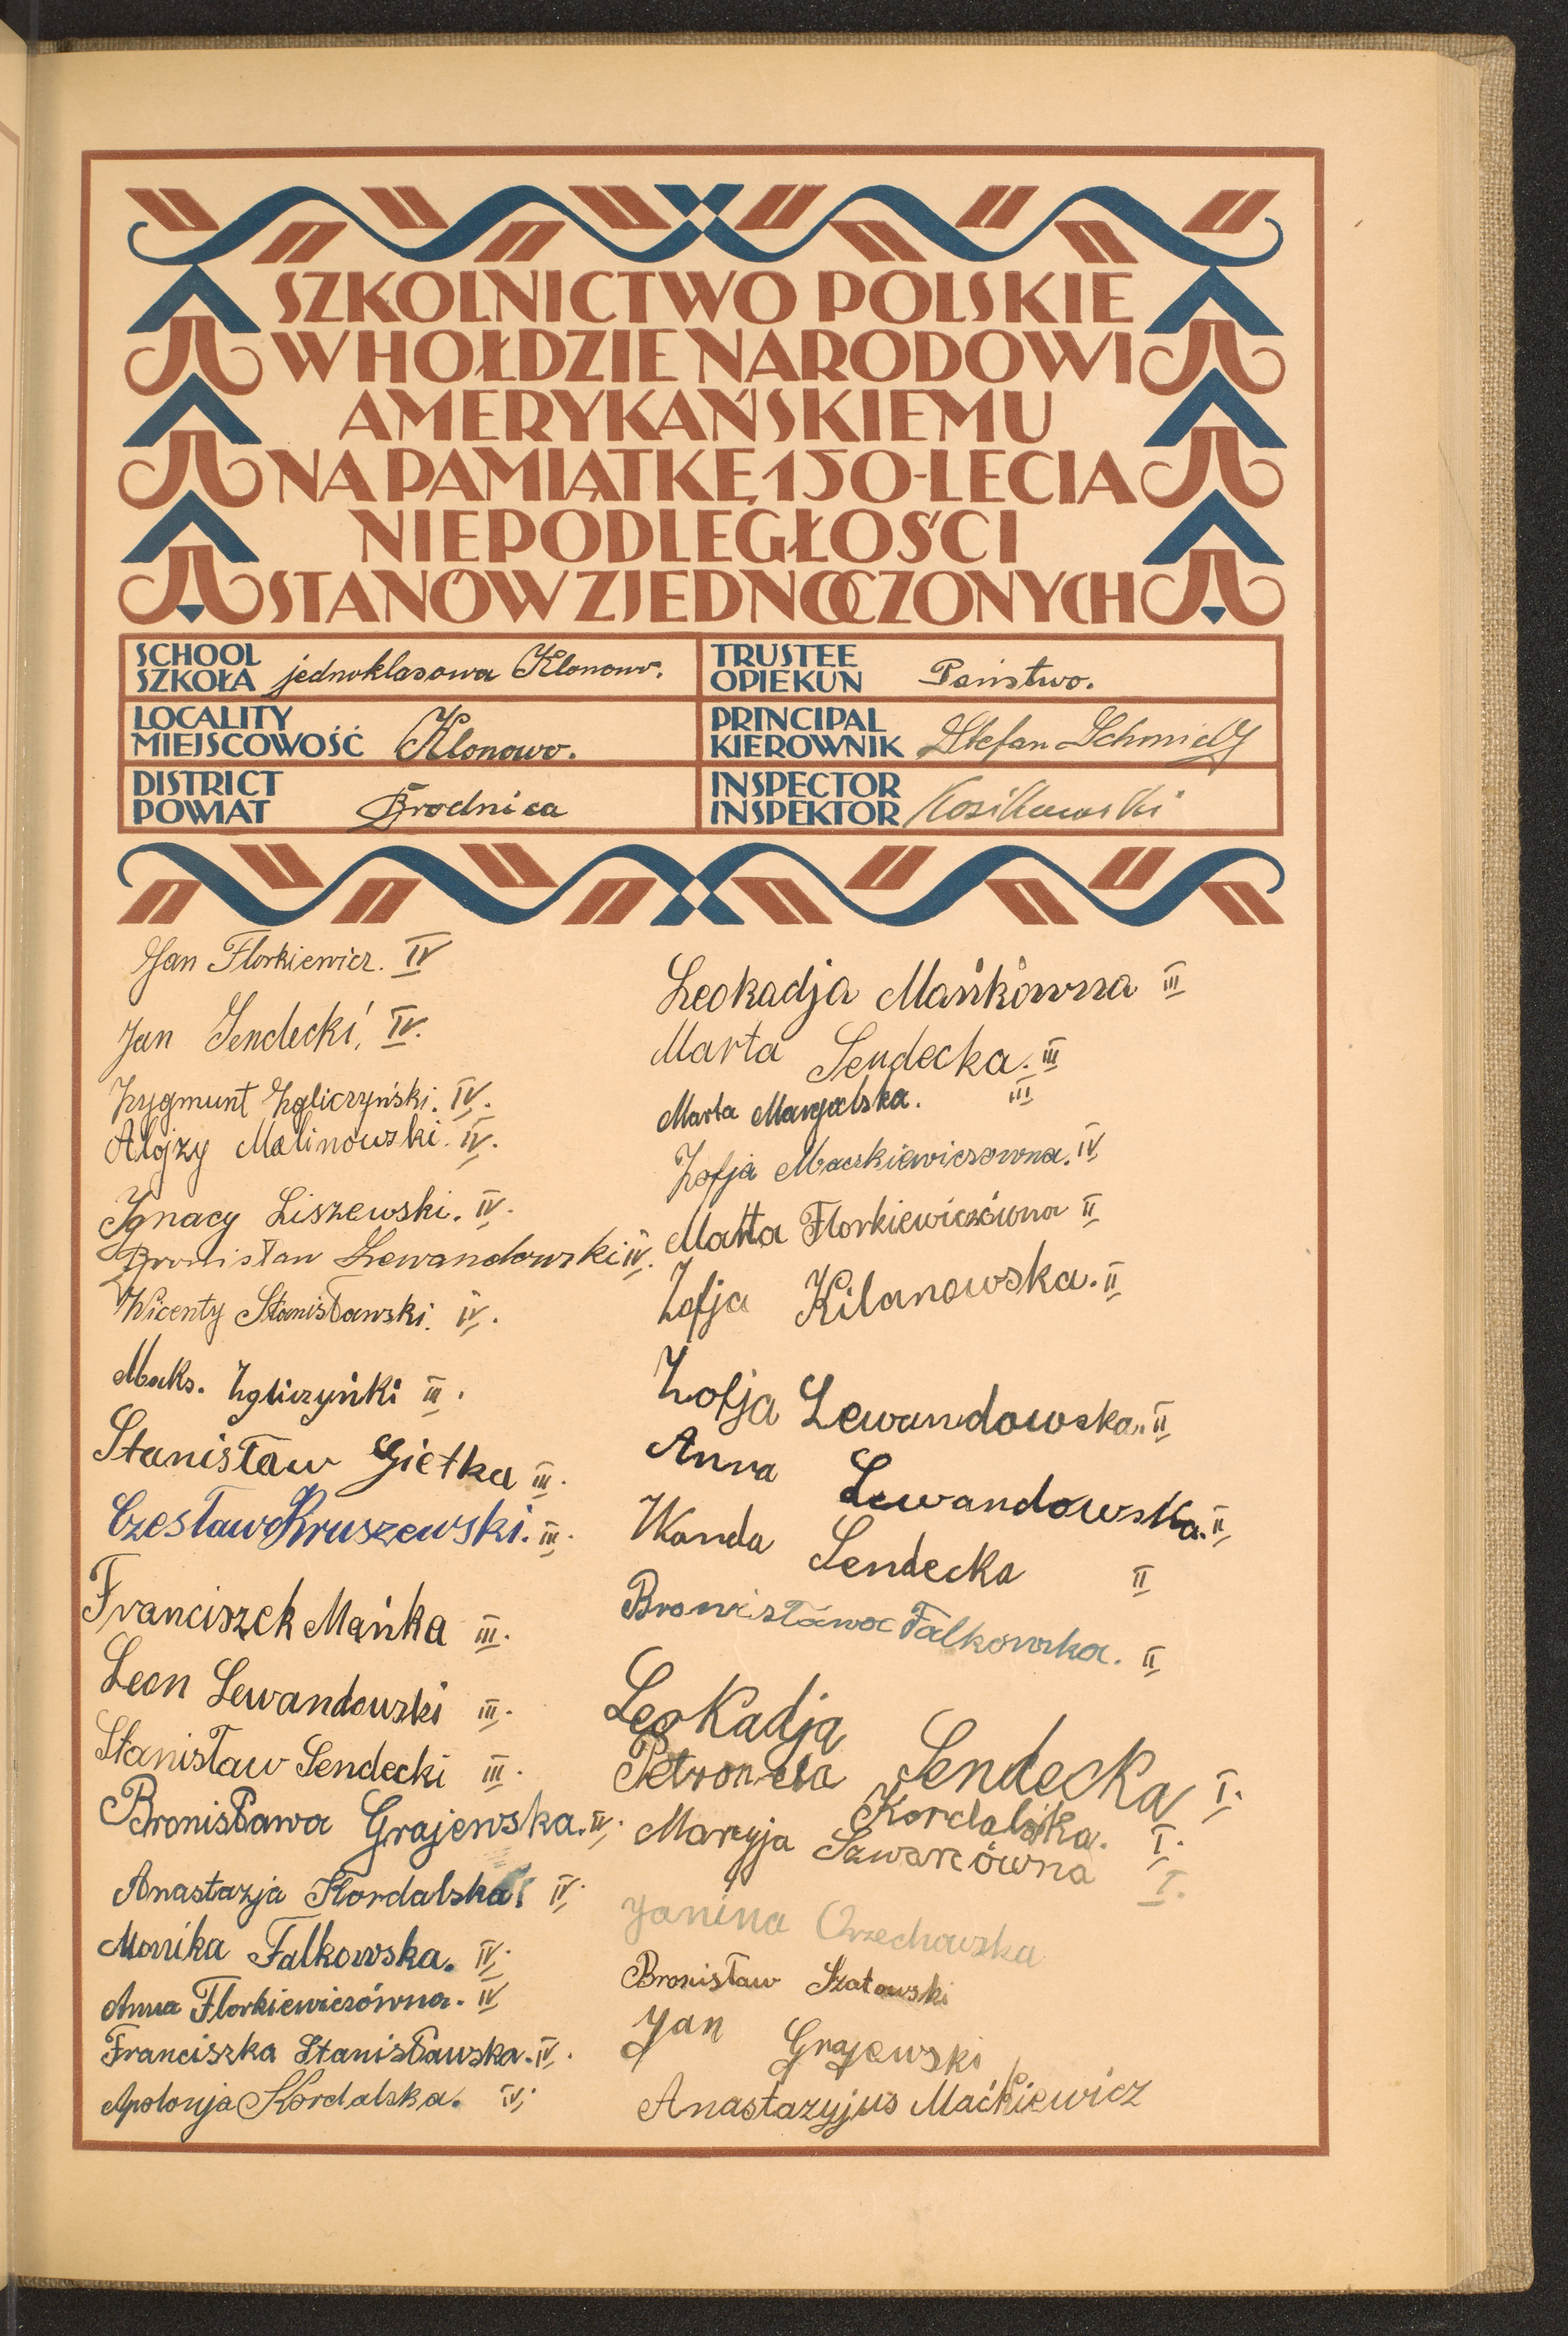 SZKOLNICTWO POLSKIE
W HOŁDZIE NARODOWI
AMERYKAŃSKIEMU
NA PAMIĄTKĘ 150-LECIA
NIEPODLEGŁOŚCI
STANÓW ZJEDNOCZONYCH
SCHOOL
SZKOŁA jednoklasowa Klonowo.
TRUSTEE
OPIEKUN Państwo.
LOCALITY
MIEJSCOWOŚĆ Klonowo.
PRINCIPAL
KIEROWNIK Stefan Schmidt
DISTRICT
POWIAT Brodnica
INSPECTOR
INSPEKTOR
Jan Florkiewicz. IV
Jan Sendecki, IV.
Zygmunt Zgliczyński. IV.
Alojzy Malinowski. IV.
Ignacy Liszewski. IV.
Bronisław Lewandowski IV.
Wicenty Stanisławski. IV.
Maks. Zgliczyńki III.
Stanisław Giętka III.
Czesław Kruszewski. III.
Franciszek Mańka III.
Leon Lewandowski III.
Stanisław Sendecki III.
Bronisława Grajewska. IV.
Anastazja Kordalska. IV.
Monika Falkowska. IV.
Anna Florkiewiczówna. IV
Franciszka Stanisławska. IV.
Apolonja Kordalska. IV.
Leokadja Mańkówna III
Marta Sendecka. III
Marta III
Zofja Mackiewiczowna. IV
Marta Florkiewiczówna II
Zofja Kilanowska. II
Zofja Lewandowska. II
Anna Lewandowska. II
Wanda Sendecka II
Bronisława Falkowska. II
Leokadja Sendecka I.
Petronela Kordalska. I.
Maryja Szwarcówna I.
Janina Orzechowska
Bronisław Szatowski
Jan Grajewski
Anastazyjus Maćkiewicz